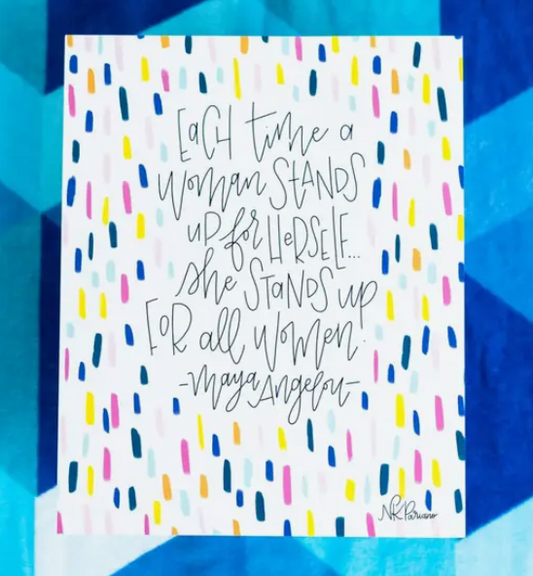 EaCH time a
woman StaNDS
uP for HeRSELF...
she StaNDS up
FoR all women.
-maya Angelou-